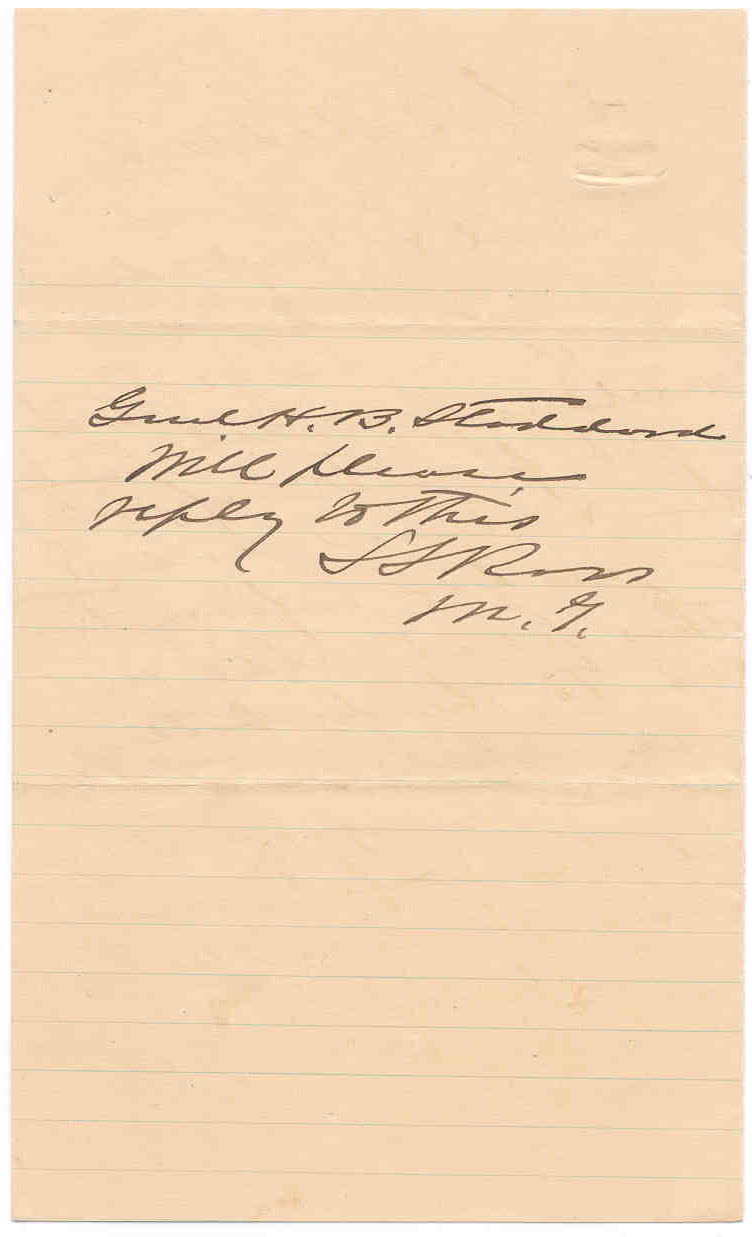 Genl H. B. Stoddard
Will please
reply to this
L S Ross
M. G.